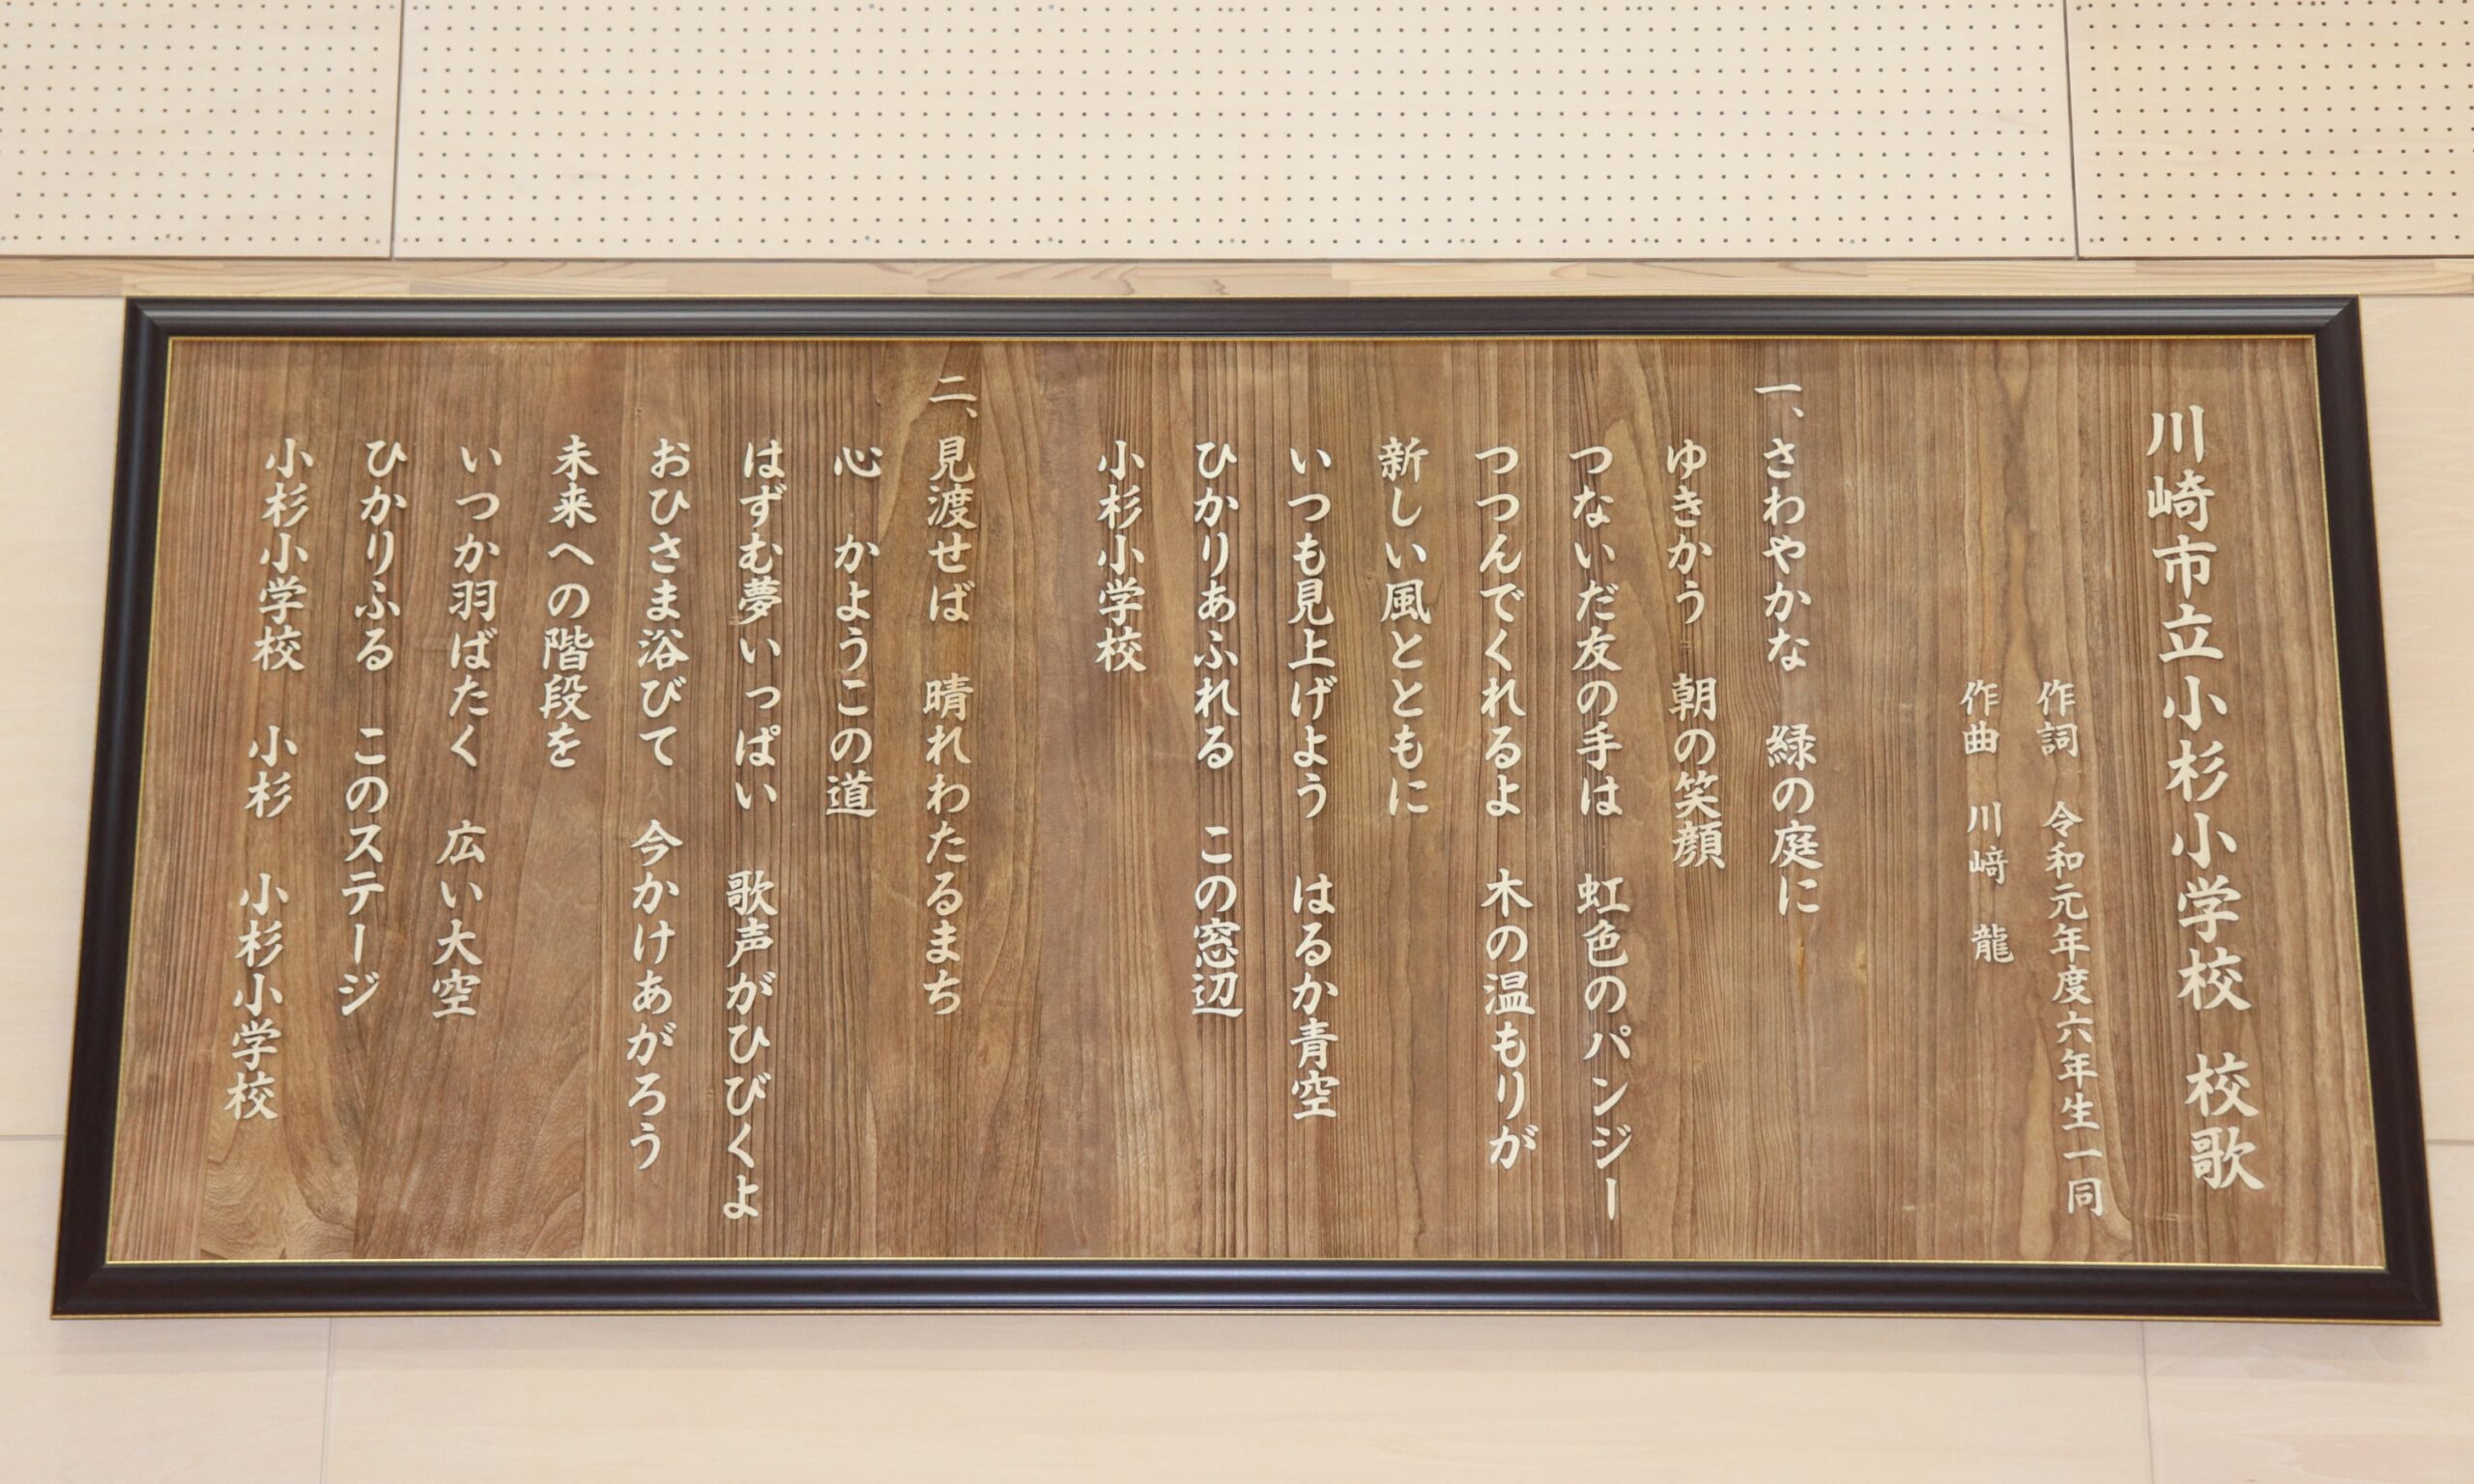 川崎市立小杉小学校 校歌
作詞 令和元年度六年生一同
作曲 川﨑 龍
一、さわやかな 緑の庭に
ゆきかう 朝の笑顔
つないだ友の手は 虹色のパンジー
つつんでくれるよ 木の温もりが
新しい風とともに
いつも見上げよう はるか青空
ひかりあふれる この窓辺
小杉小学校
二、見渡せば 晴れわたるまち
心 かようこの道
はずむ夢いっぱい 歌声がひびくよ
おひさま浴びて 今かけあがろう
未来への階段を
いつか羽ばたく 広い大空
ひかりふる このステージ
小杉小学校 小杉 小杉小学校